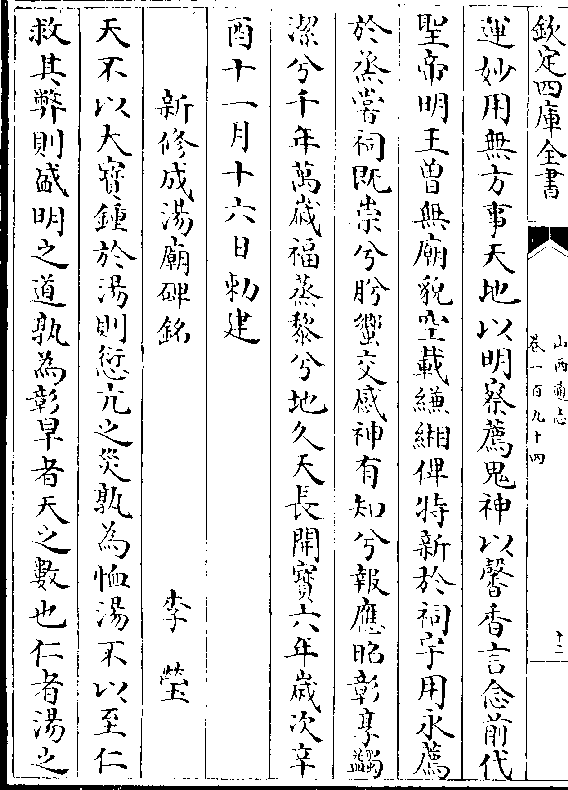 欽定四庫全書
山西通志
卷一百九十四
十二
運妙用無方事天地以明察薦鬼神以馨香言念前代
聖帝明王曾無廟貌空載縑緗俾特新於祠宇用永薦
於蒸嘗祠既崇兮肹蠁交感神有知兮報應昭彰享蠲
潔兮千年萬歲福蒸黎兮地久天長開寶六年歲次辛
酉十一月十六日勅建
新修成湯廟碑銘
李瑩
天不以大寶鍾於湯則愆亢之災孰為恤湯不以至仁
救其弊則盛明之道孰為彰旱者天之數也仁者湯之